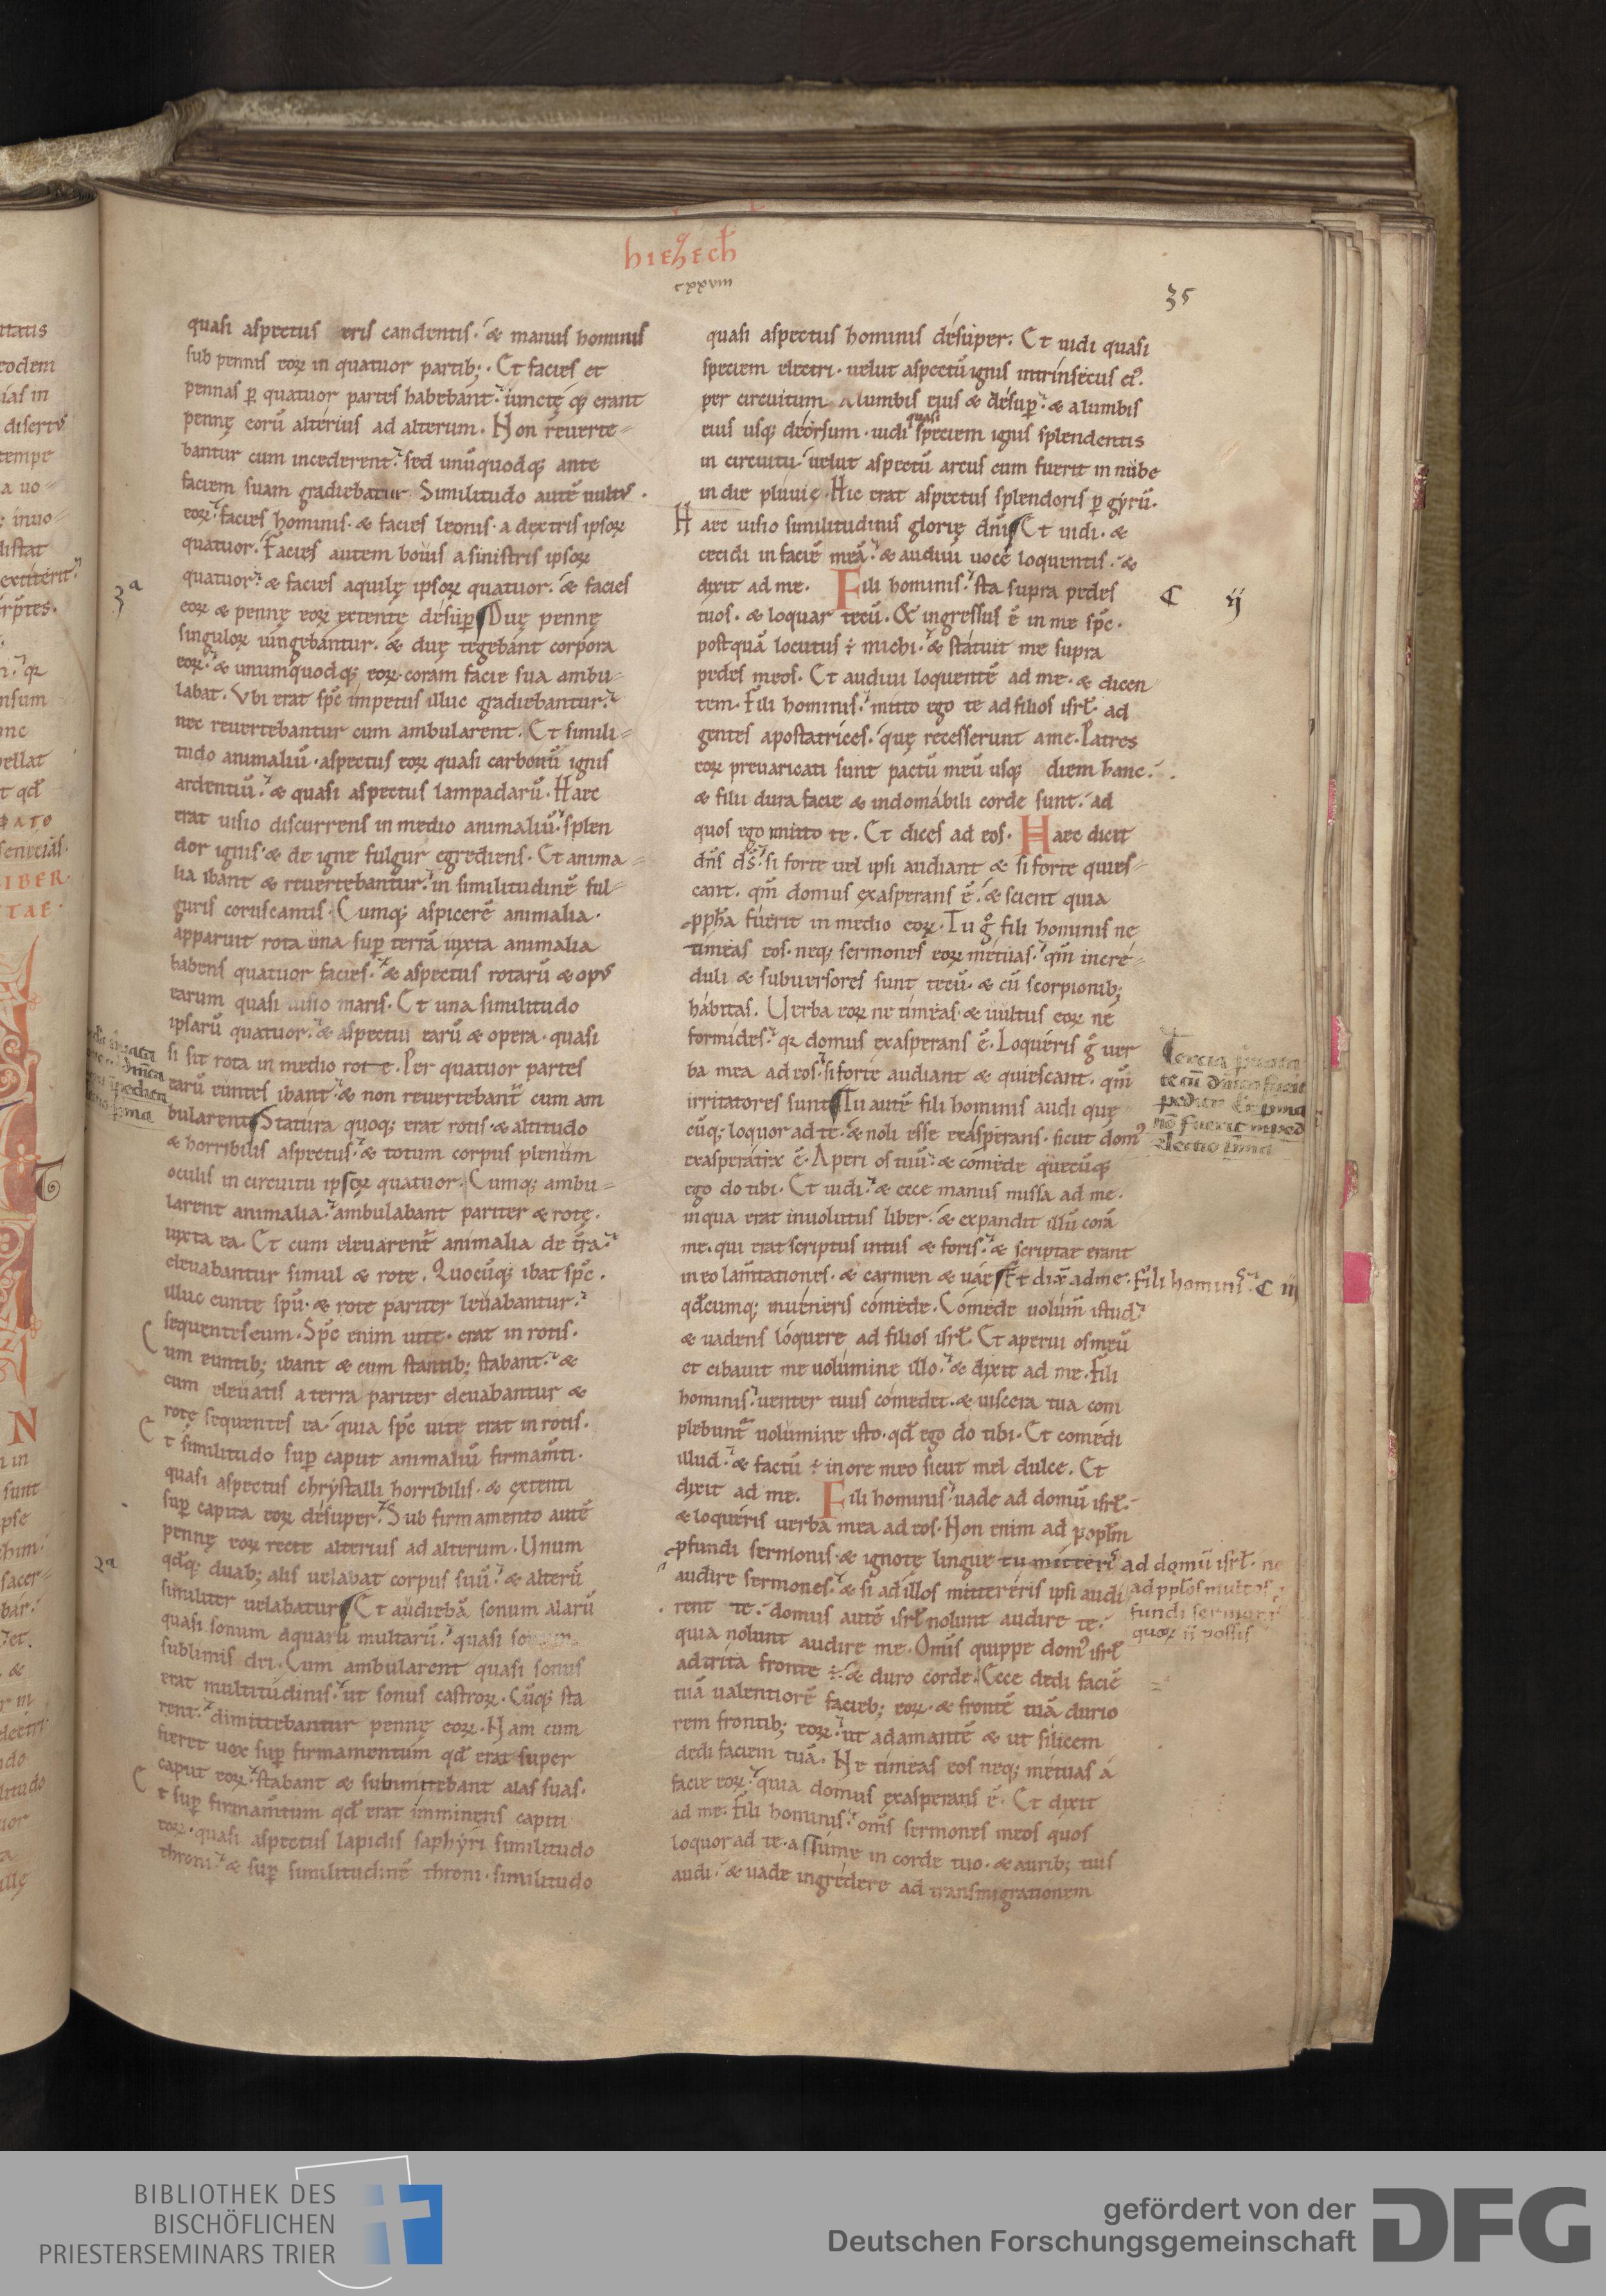 hiezech
cxxviii
35
quasi aspectus eris candentis. & manus hominis
sub pennis eoꝝ in quatuor partib;. Et facies et
pennas ꝑ quatuor partes habebant. iunctę q; erant
pennę eorū alterius ad alterum. Non reuerte-
bantur cum incederent. sed unūquodq; ante
faciem suam gradiebatur. Similitudo autē uultꝰ.
eoꝝ. facies hominis. & facies leonis. a dextris ipsoꝝ
quatuor. Facies autem bouis a sinistris ipsoꝝ
quatuor. & facies aquilę ipsoꝝ quatuor. & facies
3ᵃ
eoꝝ & pennę eoꝝ extentę desuꝑ Duę pennę
singuloꝝ iungebantur. & duę tegebant corpora
eoꝝ. & unumquodq; eoꝝ coram facie sua ambu-
labat. Vbi erat spc̄ impetus illuc gradiebantur.
nec reuertebantur cum ambularent. Et simili-
tudo animaliū. aspectus eoꝝ quasi carbonū ignis
ardentiū. & quasi aspectus lampadarū. Haec
erat uisio discurrens in medio animaliū. splen
dor ignis. & de igne fulgur egrediens. Et anima-
lia ibant & reuertebantur. in similitudinē ful-
guris coruscantis. Cumq; aspicerē animalia.
apparuit rota una suꝑ terrā iuxta animalia
habens quatuor facies. & aspectus rotarū & opꝰ
earum quasi uisio maris. Et una similitudo
ipsarū quatuor. & aspectus earū & opera. quasi
si sit rota in medio rote. Per quatuor partes
earū euntes ibant. & non reuertebant̄ cum am
bularent Statura quoq; erat rotis. & altitudo
& horribilis aspectus. & totum corpus plenum
oculis in circuitu ipsoꝝ quatuor. Cumq; ambu-
larent animalia. ambulabant pariter & rotę.
iuxta ea. Et cum eleuarent̄ animalia de tr̄a.
eleuabantur simul & rote. Quocūq; ibat spc̄.
illuc eunte spū. & rote pariter leuabantur.
sequentes eum. Spc̄ enim uite. erat in rotis.
Cum euntib; ibant & cum stantib; stabant. &
cum eleuatis a terra pariter eleuabantur &
rotę sequentes ea. quia spc̄ uite erat in rotis.
Et similitudo suꝑ caput animaliū firmam̄ti.
quasi aspectus chrystalli horribilis. & extenti
suꝑ capita eoꝝ desuper. Sub firmamento autē
pennę eoꝝ recte alterius ad alterum. Unum
2ᵃ
qđq; duab; alis uelabat corpus suū. & alterū
similiter uelabatur Et audiebā sonum alarū
quasi sonum aquarū multarū. quasi sonum
sublimis dei. Cum ambularent quasi sonus
erat multitudinis. ut sonus castroꝝ. Cūq; sta
rent. dimittebantur pennę eoꝝ. Nam cum
fieret uox suꝑ firmamentum qđ erat super
caput eoꝝ. stabant & submittebant alas suas.
Et suꝑ firmam̄tum qđ erat imminens capiti
eoꝝ. quasi aspectus lapidis saphyri similitudo
throni. & suꝑ similitudinē throni. similitudo
quasi aspectus hominis desuper. Et uidi quasi
speciem electri. uelut aspectū ignis intrinsecus eiꝰ.
per circuitum. A lumbis eius & desuꝑ. & a lumbis
eius usq; deorsum. uidi quasi speciem ignis splendentis
in circuitu. uelut aspectū arcus cum fuerit in nube
in die pluuię. Hic erat aspectus splendoris ꝑ gyrū.
Haec uisio similitudinis glorię dn̄i Et uidi. &
cecidi in faciē meā. & audiui uocē loquentis. &
dixit ad me. Fili hominis. sta supra pedes
C ij
tuos. & loquar tecū. Et ingressus ē in me spc̄.
postquā locutus ÷ michi. & statuit me supra
pedes meos. Et audiui loquentē ad me. & dicen
tem. Fili hominis. mitto ego te ad filios isrł. ad
gentes apostatrices. quę recesserunt a me. Patres
eoꝝ preuaricati sunt pactū meū usq; diem hanc.
& filii dura facie & indomabili corde sunt. ad
quos ego mitto te. Et dices ad eos. Haec dicit
dn̄s ds̄. si forte uel ipsi audiant & si forte quies-
cant. qm̄ domus exasperans ē. & scient quia
ꝓph̄a fuerit in medio eoꝝ. Tu g̊ fili hominis ne
timeas eos. neq; sermones eoꝝ metuas. qm̄ incre-
duli & subuersores sunt tecū. & cū scorpionib;
habitas. Uerba eoꝝ ne timeas. & uultus eoꝝ ne
formides. qꝛ domus exasperans ē. Loqueris g̊ uer
ba mea ad eos. si forte audiant & quiescant. qm̄
irritatores sunt Tu autē fili hominis audi quę
cūq; loquor ad te. & noli esse exasperans. sicut domꝰ
exasperatrix ē. Aperi os tuū. & comede quecūq;
ego do tibi. Et uidi. & ecce manus missa ad me.
in qua erat inuolutus liber. & expandit illū corā
me. qui erat scriptus intus & foris. & scriptae erant
in eo lam̄tationes. & carmen & uae Et dix̄ ad me. Fili hominis. C iij
qđcumq; inueneris comede. Comede uolum̄ istud.
& uadens loquere ad filios isrł. Et aperui os meū
et cibauit me uolumine illo. & dixit ad me. Fili
hominis. uenter tuus comedet. & uiscera tua com
plebunt̄ uolumine isto. qđ ego do tibi. Et comedi
illud. & factū ÷ in ore meo sicut mel dulce. Et
dixit ad me. Fili hominis. uade ad domū isrł.
& loqueris uerba mea ad eos. Non enim ad popłm
ꝓfundi sermonis. & ignotę lingue tu mitteris ad domū isrł.
ad ppłos multos
audire sermones. & si ad illos mittereris ipsi audi
rent te. domus autē isrł nolunt audire te.
quia nolunt audire me. Omīs quippe domꝰ isrł
adtrita fronte ÷. & duro corde. Ecce dedi faciē
tuā ualentiorē facieb; eoꝝ. & frontē tuā durio
rem frontib; eoꝝ. ut adamantē & ut silicem
dedi faciem tuā. Ne timeas eos neq; metuas a
facie eoꝝ. quia domus exasperans ē. Et dixit
ad me. Fili hominis. om̄s sermones meos quos
loquor ad te. assume in corde tuo. & aurib; tuis
audi. & uade ingredere ad transmigrationem
BIBLIOTHEK DES
BISCHÖFLICHEN
PRIESTERSEMINARS TRIER
gefördert von der
Deutschen Forschungsgemeinschaft
DFG